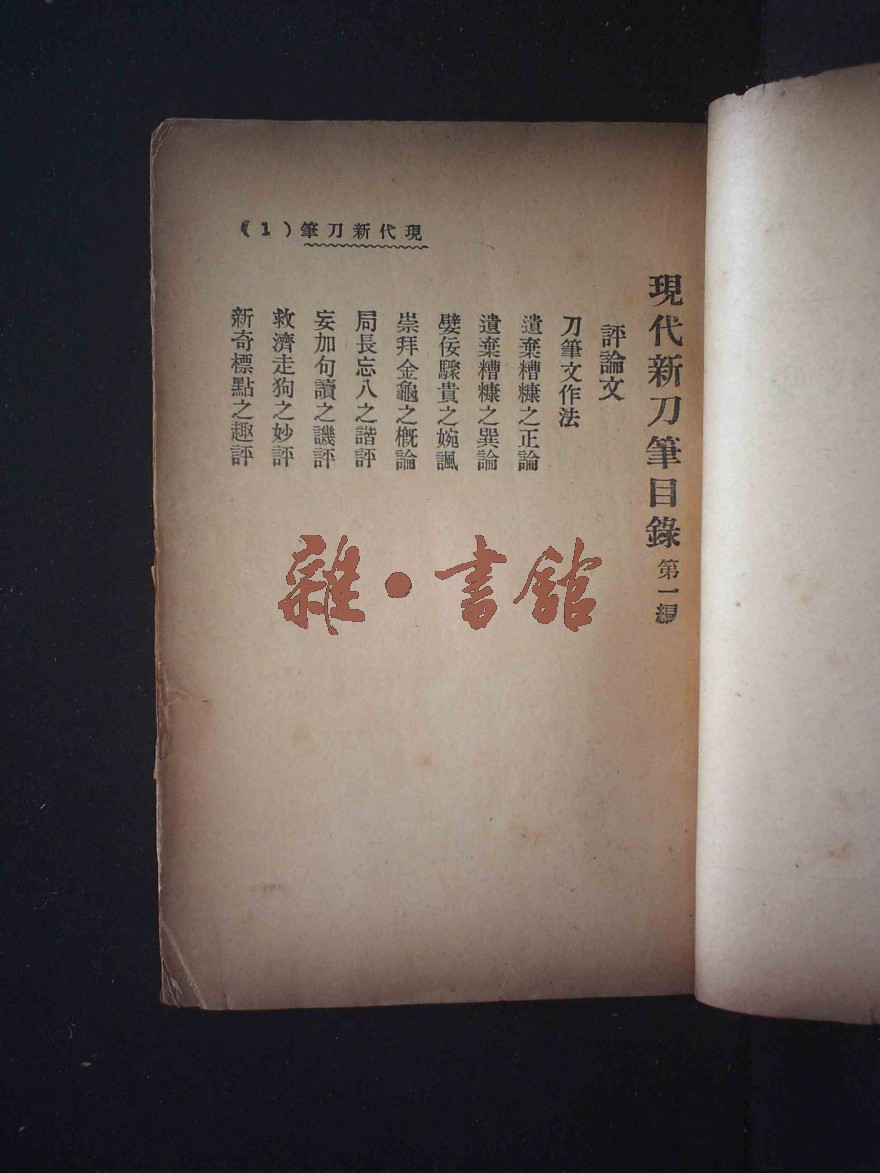 現代新刀筆(1)
現代新刀筆目錄 第一編
評論文
刀筆文作法
遺棄糟糠之正論
遺棄糟糠之巽論
嬖佞驟貴之婉諷
崇拜金龜之概論
局長忘八之諧評
妄加句讀之譏評
救濟走狗之妙評
新奇標點之趣評
雜·書館